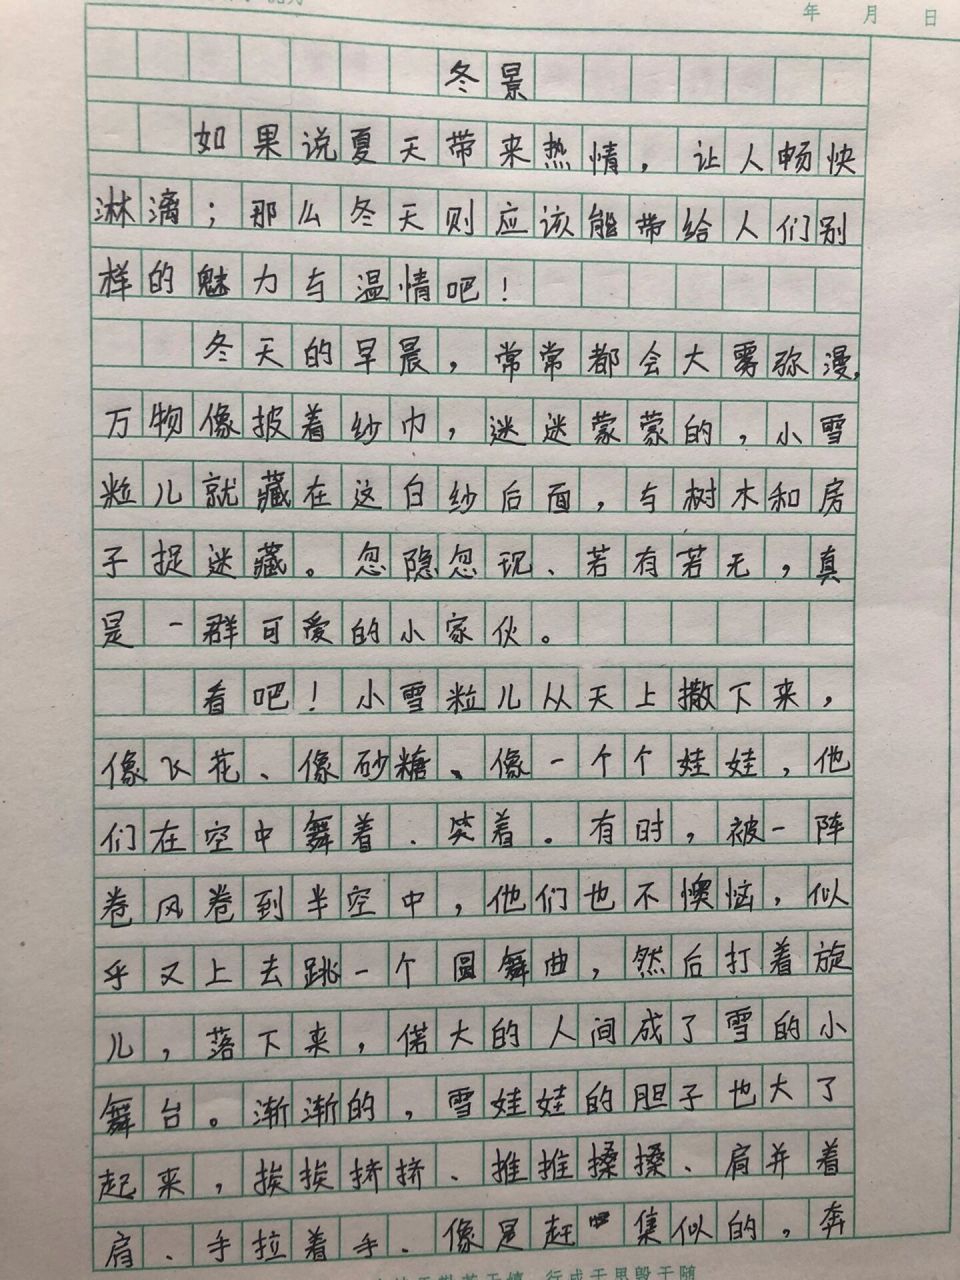 年 月 日
冬景
如果说夏天带来热情，让人畅快
淋漓；那么冬天则应该能带给人们别
样的魅力与温情吧！
冬天的早晨，常常都会大雾弥漫，
万物像披着纱巾，迷迷蒙蒙的，小雪
粒儿就藏在这白纱后面，与树木和房
子捉迷藏。忽隐忽现、若有若无，真
是一群可爱的小家伙。
看吧！小雪粒儿从天上撒下来，
像飞花、像砂糖、像一个个娃娃，他
们在空中舞着、笑着。有时，被一阵
卷风卷到半空中，他们也不懊恼，似
乎又上去跳一个圆舞曲，然后打着旋
儿，落下来，偌大的人间成了雪的小
舞台。渐渐的，雪娃娃的胆子也大了
起来，挨挨挤挤、推推搡搡、肩并着
肩、手拉着手、像是赶集似的，奔
行成于思毁于随